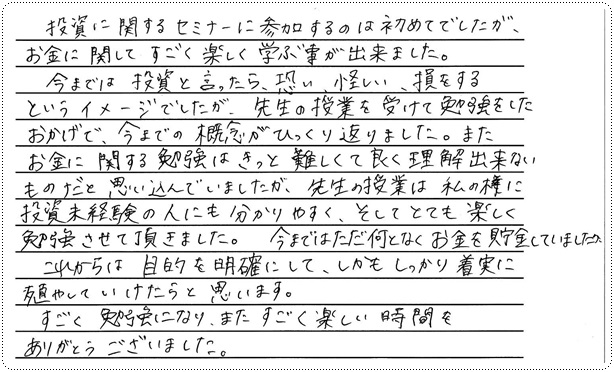 投資に関するセミナーに参加するのは初めてでしたが、
お金に関してすごく楽しく学ぶ事が出来ました。
今までは投資と言ったら、恐い、怪しい、損をする
というイメージでしたが、先生の授業を受けて勉強をした
おかげで、今までの概念がひっくり返りました。また
お金に関する勉強はきっと難しくて良く理解出来ない
ものだと思い込んでいましたが、先生の授業は私の様に
投資未経験の人にも分かりやすく、そしてとても楽しく
勉強させて頂きました。 今まではただ何となくお金を貯金していましたが
これからは目的を明確にして、しかもしっかり着実に
殖やしていけたらと思います。
すごく勉強になり、またすごく楽しい時間を
ありがとうございました。